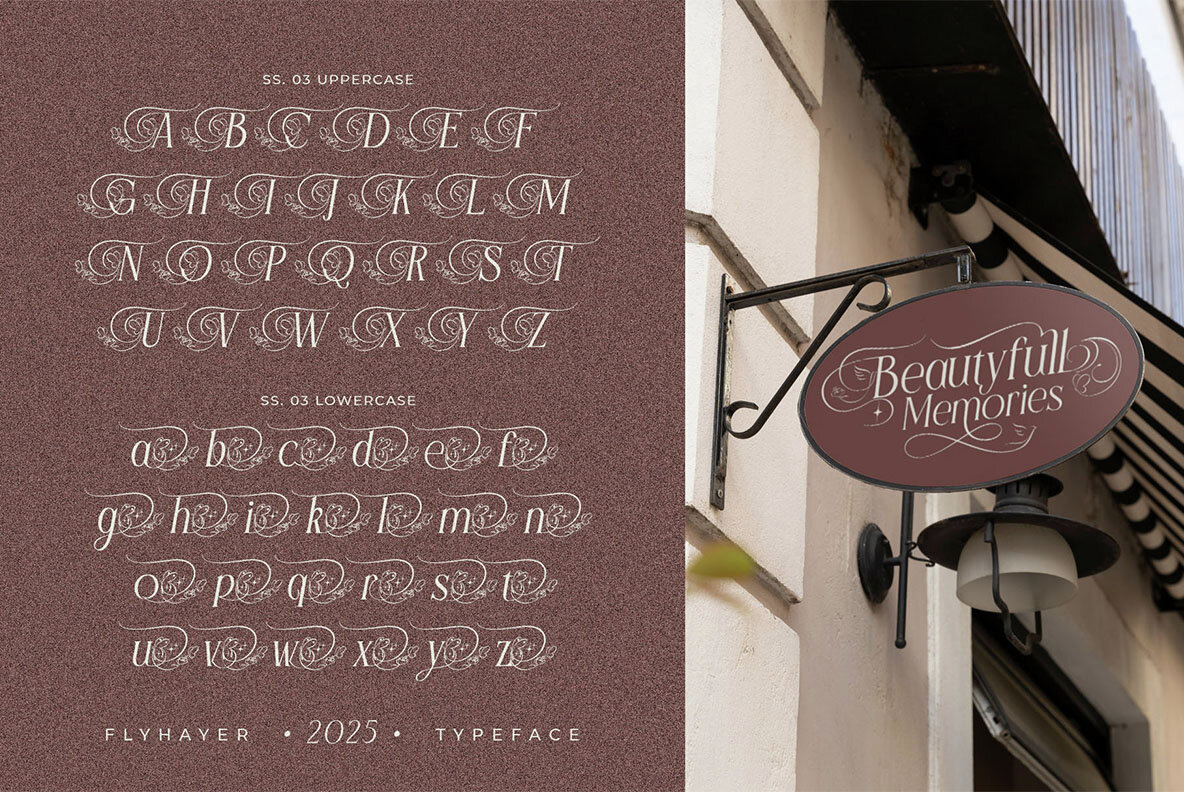 SS. 03 UPPERCASE
A B C D E F
G H I J K L M
N O P Q R S T
U V W X Y Z
SS. 03 LOWERCASE
a b c d e f
g h i k l m n
o p q r s t
u v w x y z
FLYHAYER • 2025 • TYPEFACE
Beautyfull
Memories